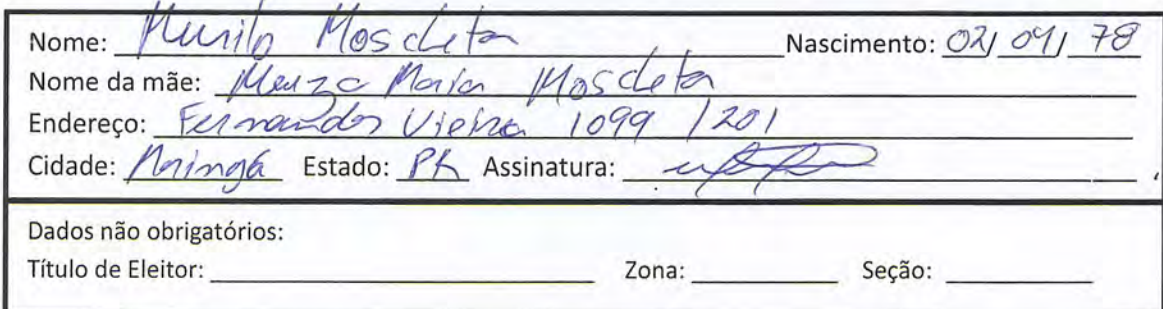 Nome: Murilo Moscheta Nascimento: 02/ 01/ 78
Nome da mãe: Maria Moscheta
Endereço: Fernandes Vieira 1099 /201
Cidade: Maringá Estado: PR Assinatura:
Dados não obrigatórios:
Título de Eleitor: Zona: Seção: